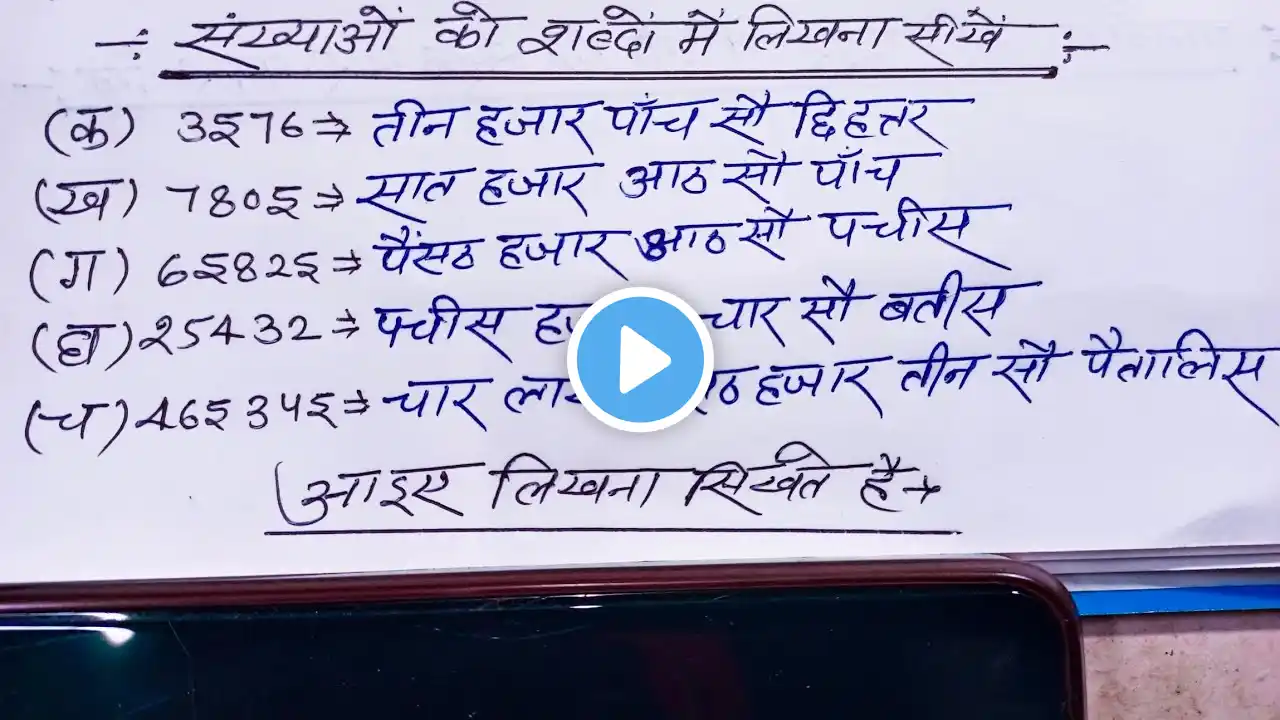 -: संख्याओं को शब्दों में लिखना सीखें :-
(क) 3576⇒ तीन हजार पाँच सौ छिहत्तर
(ख) 7805⇒ सात हजार आठ सौ पाँच
(ग) 65825⇒ पैंसठ हजार आठ सौ पचीस
(घ) 25432⇒ पचीस चार सौ बतीस
(च) 465345⇒ चार हजार तीन सौ पैतालिस
आइए लिखना सिखते है→